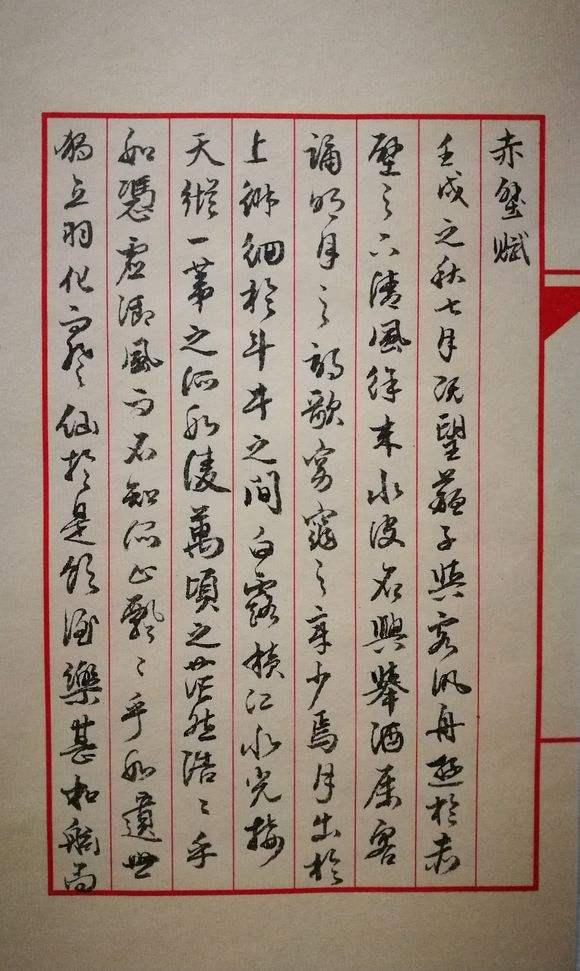 赤壁賦
壬戌之秋七月既望蘇子與客汎舟遊於赤
壁之下清風徐來水波不興舉酒属客
誦明月之詩歌窈窕之章少焉月出於
上徘徊於斗牛之間白露橫江水光接
天縱一葦之所如凌萬頃之茫然浩〻乎
如憑虛御風而不知所止飄〻乎如遺世
獨立羽化而登仙於是飲酒樂甚扣舷而